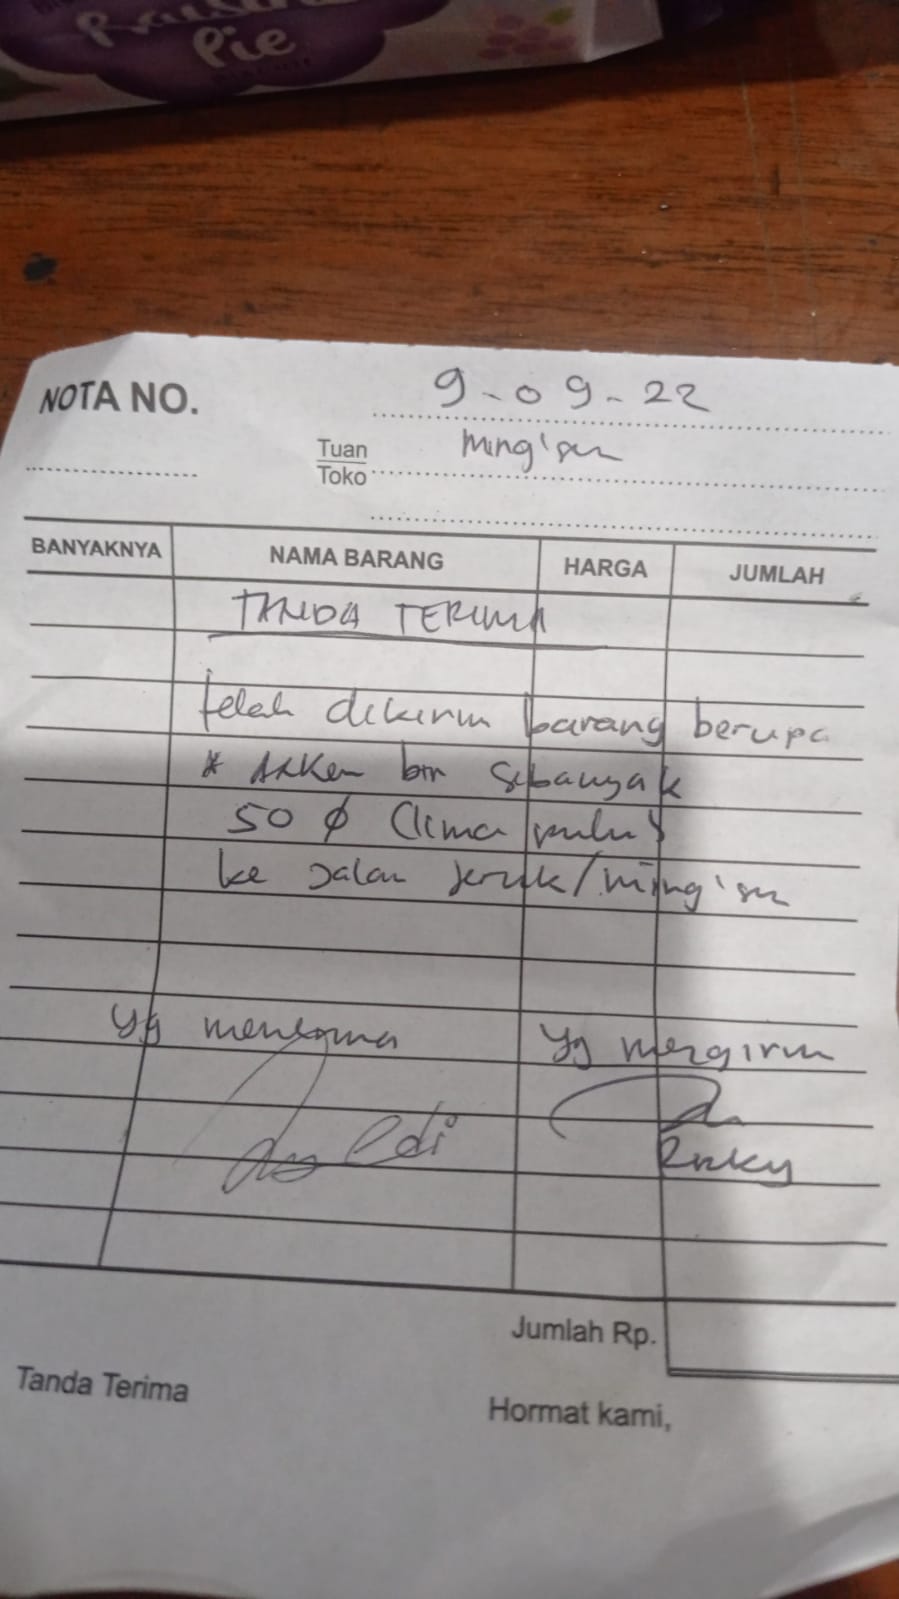 Raisin
Pie
NOTA NO.
9-09-22
Tuan
Toko
Ming'sen
BANYAKNYA NAMA BARANG HARGA JUMLAH
TANDA TERIMA
telah dikirim barang berupa
* sebanyak
50 ϕ (lima puluh
ke Jalan Jeruk/Ming'sen
Yg menerima Yg mengirim
Edi
Rizky
Jumlah Rp.
Tanda Terima
Hormat kami,